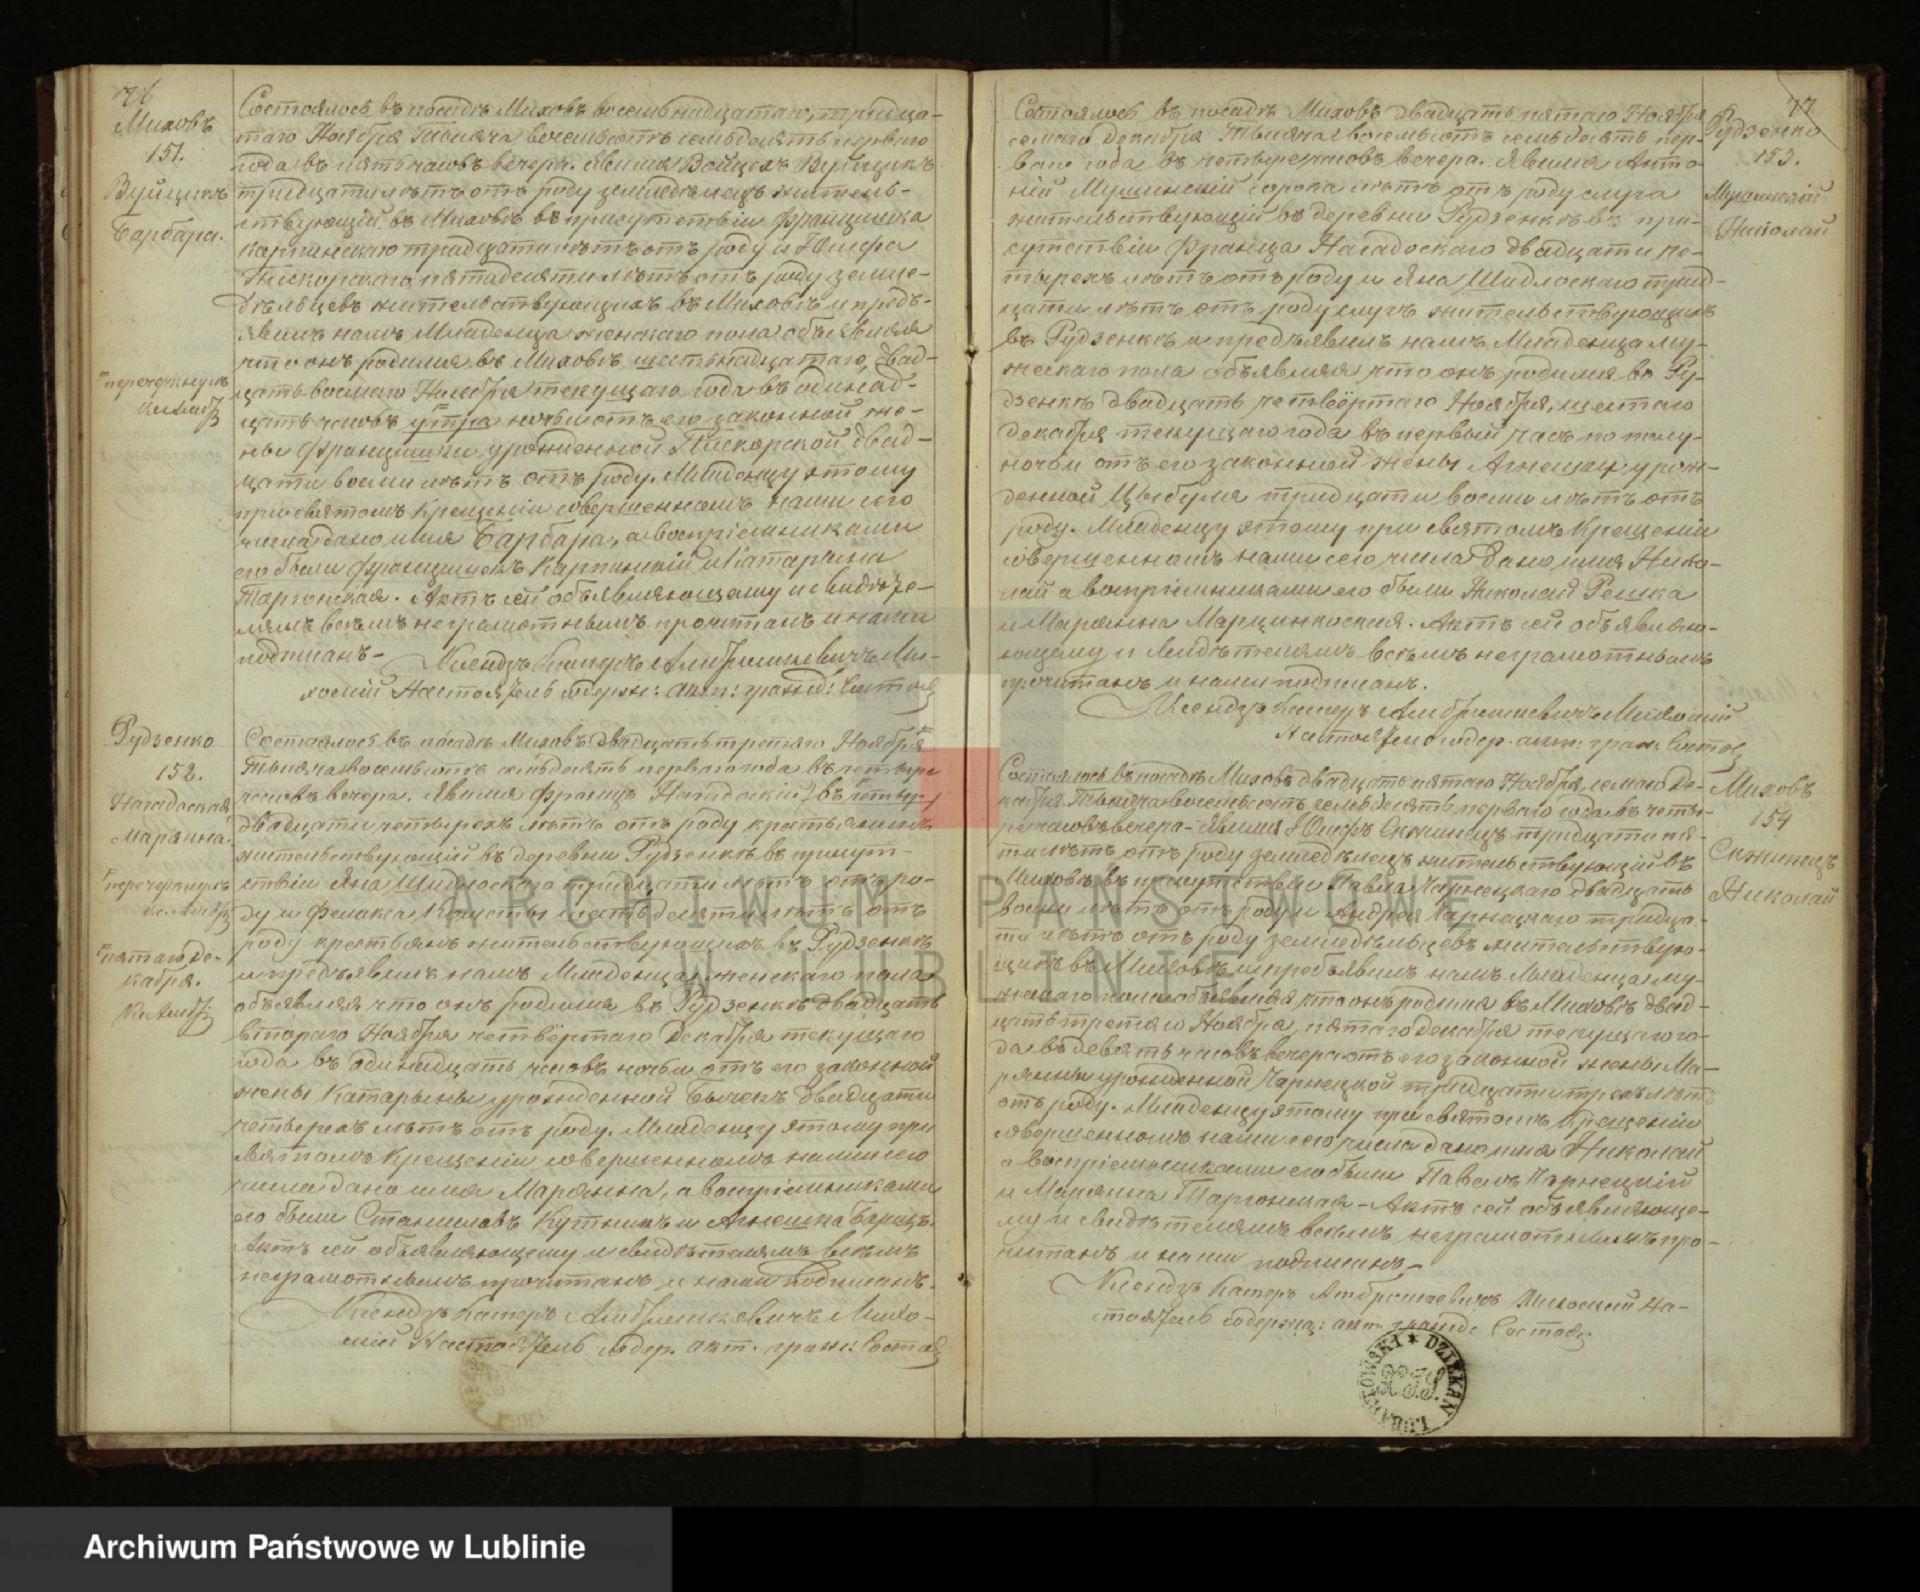 76
Миховъ
151.
Вуйцикъ
Барбара.
Состоялось въ посадѣ Миховѣ восемьнадцатаго, тридца-
таго Ноября Тысяча восемьсотъ семьдесятъ перваго
года въ пять часовъ вечера. Явился Войцехъ Вуйцикъ
тридцати лѣтъ отъ роду земледѣлецъ житель-
ствующій въ Миховѣ въ присутствіи Францишка
Карпинскаго тридцати лѣтъ отъ роду и Юзефа
Пискорскаго пятидесяти лѣтъ отъ роду земле-
дѣльцевъ жительствующихъ въ Миховѣ и предъ-
явилъ намъ Младенца женскаго пола объявляя
что онъ родился въ Миховѣ шестьнадцатаго, двад-
цать восьмаго Ноября текущаго года въ одинад-
цать часовъ утра ночью отъ его законной же-
ны Францишки урожденной Пискорской двад-
цати восьми лѣтъ отъ роду. Младенцу этому
при святомъ Крещеніи совершенномъ нами сего
числа дано имя Барбара, а воспріемниками
его были Францишекъ Карпинскій и Катарына
Таргонская. Актъ сей объявляющему и свидѣте-
лямъ всѣмъ неграмотнымъ прочитанъ и нами
подписанъ.-
Ксендзъ Каспръ Амброшкевичъ Ми-
ховскій Настоятель содерж: акт: гражд: Состоя
перечеркнулъ
Рудзенко
152.
Нагадоская
Марянна.
перечеркнулъ
пятаго Де-
кабря.
Состоялось въ посадѣ Миховѣ двадцать третяго Ноября
Тысяча восемьсотъ семьдесятъ перваго года въ четыре
часовъ вечера. Явился Францъ Нагадоскій
двадцати четырехъ лѣтъ отъ роду крестьянинъ
жительствующій въ деревни Рудзенкѣ въ присут-
ствіи Яна Шидлоскаго тридцати лѣтъ отъ ро-
ду и Феликса шестьдесяти лѣтъ отъ
роду крестьянъ жительствующихъ въ Рудзенкѣ
и предъявилъ намъ Младенца женскаго пола
объявляя что онъ родился въ Рудзенкѣ двадцать
втораго Ноября четвёртаго Декабря текущаго
года въ одинадцать часовъ ночью отъ его законной
жены Катарыны урожденной Бычекъ двадцати
четверехъ лѣтъ отъ роду. Младенцу этому при
святомъ Крещеніи совершенномъ нами сего
числа дано имя Марянна, а воспріемниками
его были Станиславъ Кутникъ и Агнешка
Актъ сей объявляющему и свидѣтелямъ всѣмъ
неграмотнымъ прочитанъ и нами подписанъ.
Ксендзъ Каспръ Амброшкевичъ Михо-
скій Настоятель содер. акт. гражд: Состоя
77
Рудзенко
153.
Мушинскій
Николай
Состоялось въ посадѣ Миховѣ двадцать пятаго Ноября
семаго Декабря Тысяча восемьсотъ семьдесятъ пер-
ваго года въ четыре часовъ вечера. Явился Анто-
ній Мушинскій сорока лѣтъ отъ роду слуга
жительствующій въ деревни Рудзенкѣ въ при-
сутствіи Францa Нагадоскаго двадцати че-
тырехъ лѣтъ отъ роду и Яна Шидлоскаго трид-
цати лѣтъ отъ роду слугъ жительствующихъ
въ Рудзенкѣ и предъявилъ намъ Младенца му-
жескаго пола объявляя что онъ родился во Ру-
дзенкѣ двадцать четвёртаго Ноября, шестаго
Декабря текущаго года въ первый часъ по полу-
ночи отъ его законной жены Агнешки урож-
денной Цыбуля тридцати восьми лѣтъ отъ
роду. Младенцу этому при святомъ Крещеніи
совершенномъ нами сего числа дано имя Нико-
лай а воспріемниками его были Николай Решка
и Марянна Марцинкоская. Актъ сей объявляю-
ющему и свидѣтелямъ всѣмъ неграмотнымъ
прочитанъ и нами подписанъ.
Ксендзъ Каспръ Амброшкевичъ Миховскій
Настоятель содер. акт: граж: Состоя
Миховъ
154
Скжипецъ
Николай
Состоялось въ посадѣ Миховѣ двадцать пятаго Ноября, семаго Де-
кабря Тысяча восемьсотъ семьдесятъ перваго года въ четы-
ре часовъ вечера - Явился Юзефъ Скжипецъ тридцати пя-
ти лѣтъ отъ роду земледѣлецъ жительствующій въ
Миховѣ въ присутствіи Павла Чарнецкаго двадцать
восьми лѣтъ отъ роду и Андрея Чарнецкаго тридца-
ти лѣтъ отъ роду земледѣльцевъ жительствую-
щихъ въ Миховѣ и предъявилъ намъ Младенца му-
жескаго пола объявляя что онъ родился въ Миховѣ двад-
цать третяго Ноября, пятаго Декабря текущаго го-
да въ девять часовъ вечера отъ его законной жены Ма-
рянны урожденной Чарнецкой тридцати трехъ лѣтъ
отъ роду. Младенцу этому при святомъ Крещеніи
совершенномъ нами сего числа дано имя Николай
а воспріемниками его были Павелъ Чарнецкій
и Марянна Таргонская - Актъ сей объявляюще-
му и свидѣтелямъ всѣмъ неграмотнымъ про-
читанъ и нами подписанъ -
Ксендзъ Каспръ Амброшкевичъ Миховскій На-
стоятель содержащ: акт: гражд: Состоя.
DZIEKAN LUBARTOWSKI
ARCHIWUM PAŃSTWOWE
W LUBLINIE
Archiwum Państwowe w Lublinie